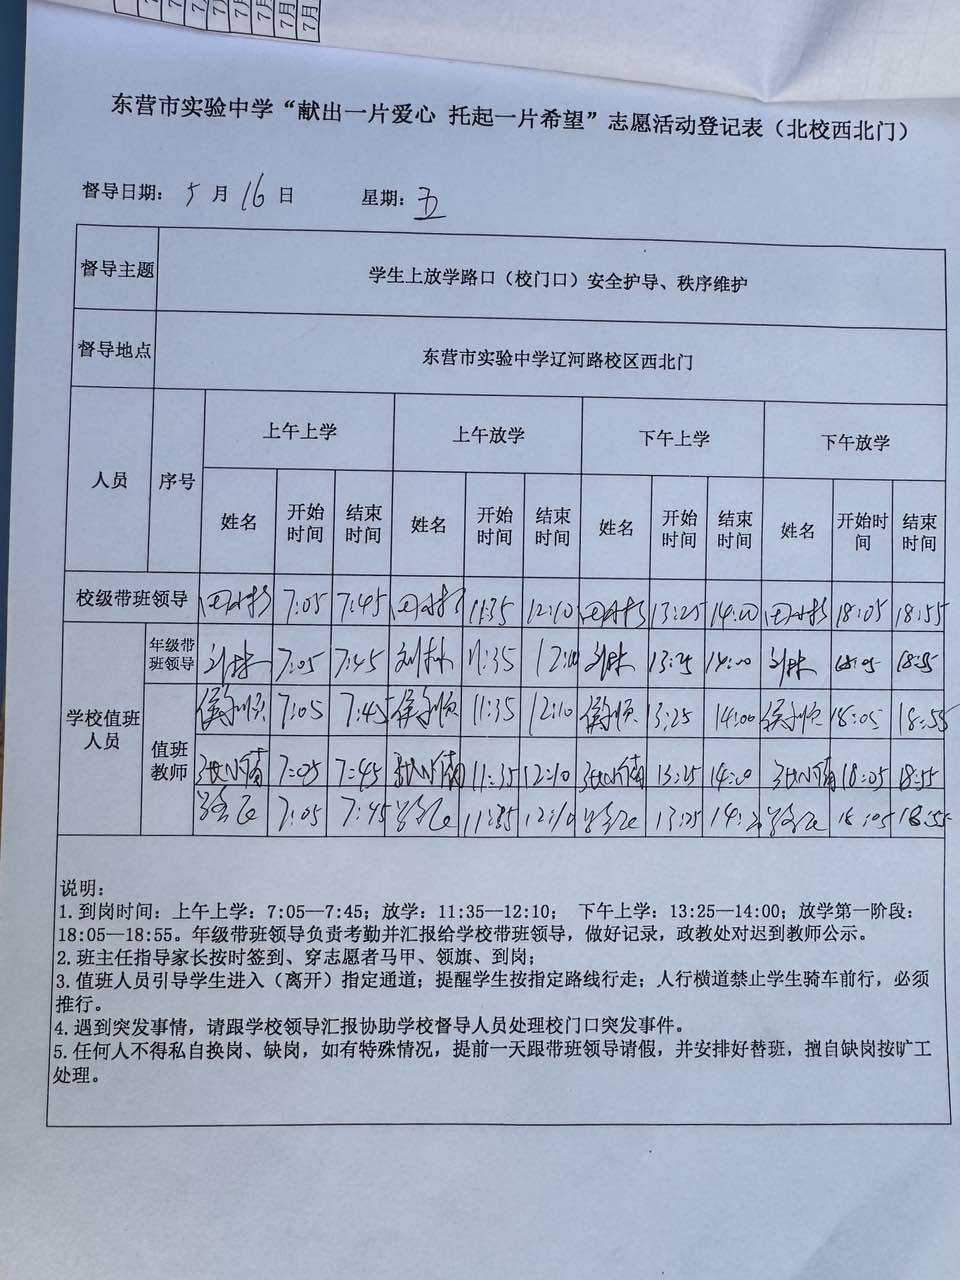 7月 7月 7月 7月
东营市实验中学“献出一片爱心 托起一片希望”志愿活动登记表（北校西北门）
督导日期： 5 月 16 日 星期：五
督导主题 学生上放学路口（校门口）安全护导、秩序维护
督导地点 东营市实验中学辽河路校区西北门
人员 序号 上午上学 上午放学 下午上学 下午放学
姓名 开始时间 结束时间 姓名 开始时间 结束时间 姓名 开始时间 结束时间 姓名 开始时间 结束时间
校级带班领导 7:05 7:45 11:35 12:10 13:25 14:00 18:05 18:55
学校值班人员 年级带班领导 刘林 7:05 7:45 刘林 11:35 刘林 13:25 14:00 刘林 18:05 18:55
值班教师 侯利顺 7:05 7:45 侯利顺 11:35 12:10 侯利顺 13:25 14:00 侯利顺 18:05 18:55
张小楠 7:05 7:45 张小楠 11:35 12:10 张小楠 13:25 14:00 张小楠 18:05 18:55
7:05 7:45 11:35 12:10 13:25 18:05 18:55
说明：
1. 到岗时间：上午上学：7:05—7:45；放学：11:35—12:10； 下午上学：13:25—14:00；放学第一阶段：
18:05—18:55。年级带班领导负责考勤并汇报给学校带班领导，做好记录，政教处对迟到教师公示。
2. 班主任指导家长按时签到、穿志愿者马甲、领旗、到岗；
3. 值班人员引导学生进入（离开）指定通道；提醒学生按指定路线行走；人行横道禁止学生骑车前行，必须
推行。
4. 遇到突发事情，请跟学校领导汇报协助学校督导人员处理校门口突发事件。
5. 任何人不得私自换岗、缺岗，如有特殊情况，提前一天跟带班领导请假，并安排好替班，擅自缺岗按旷工
处理。